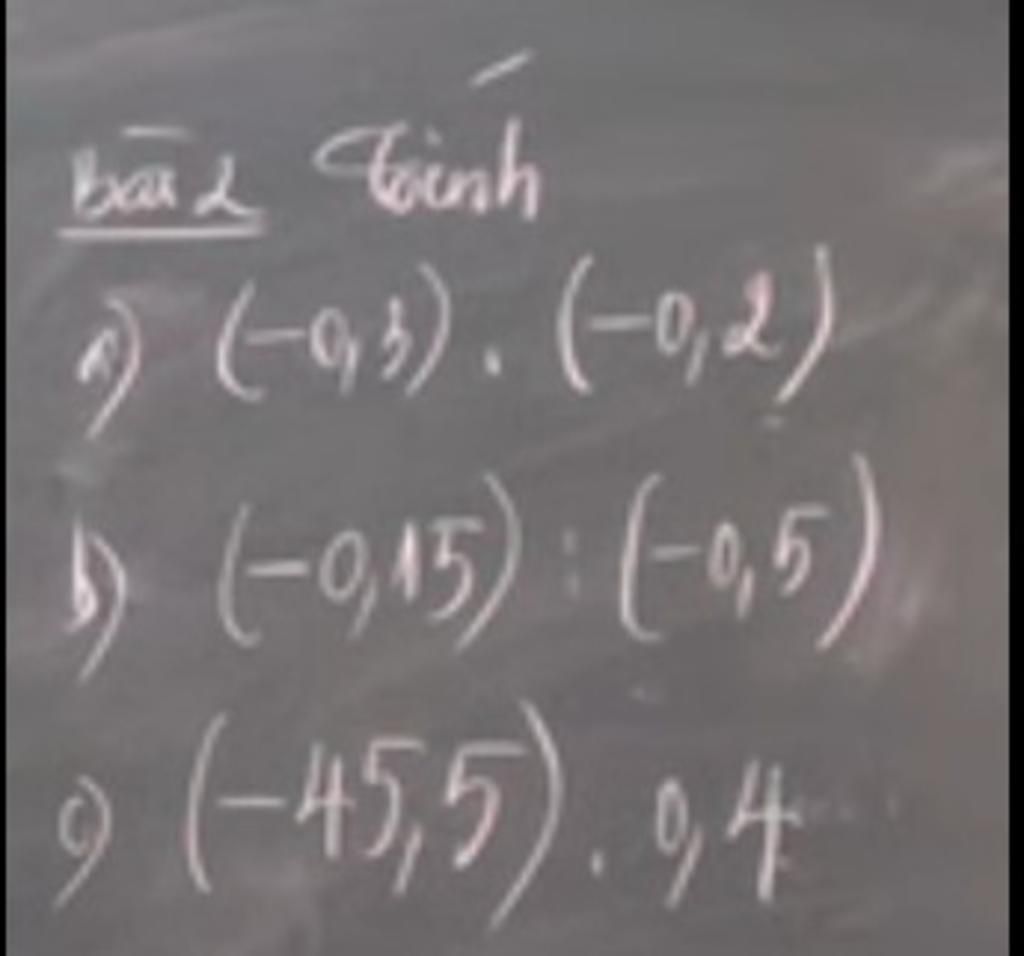 Bài 2 Tính
a) (-0,3) . (-0,2)
b) (-0,15) : (-0,5)
c) (-45,5) . 0,4